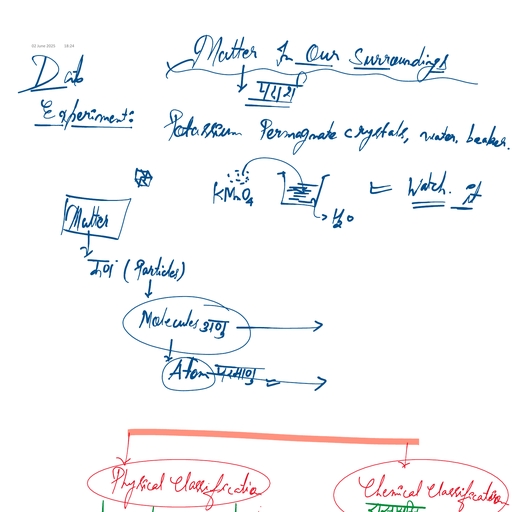 02 June 2025 18:24
Matter In Our Surroundings
पदार्थ
Daily
Experiment:
Potassium Permagnate crystals, water, beaker.
KMnO4
H2O
Watch it
Matter
कण (Particles)
Molecules अणु
Atom परमाणु
Physical Classification
Chemical Classification